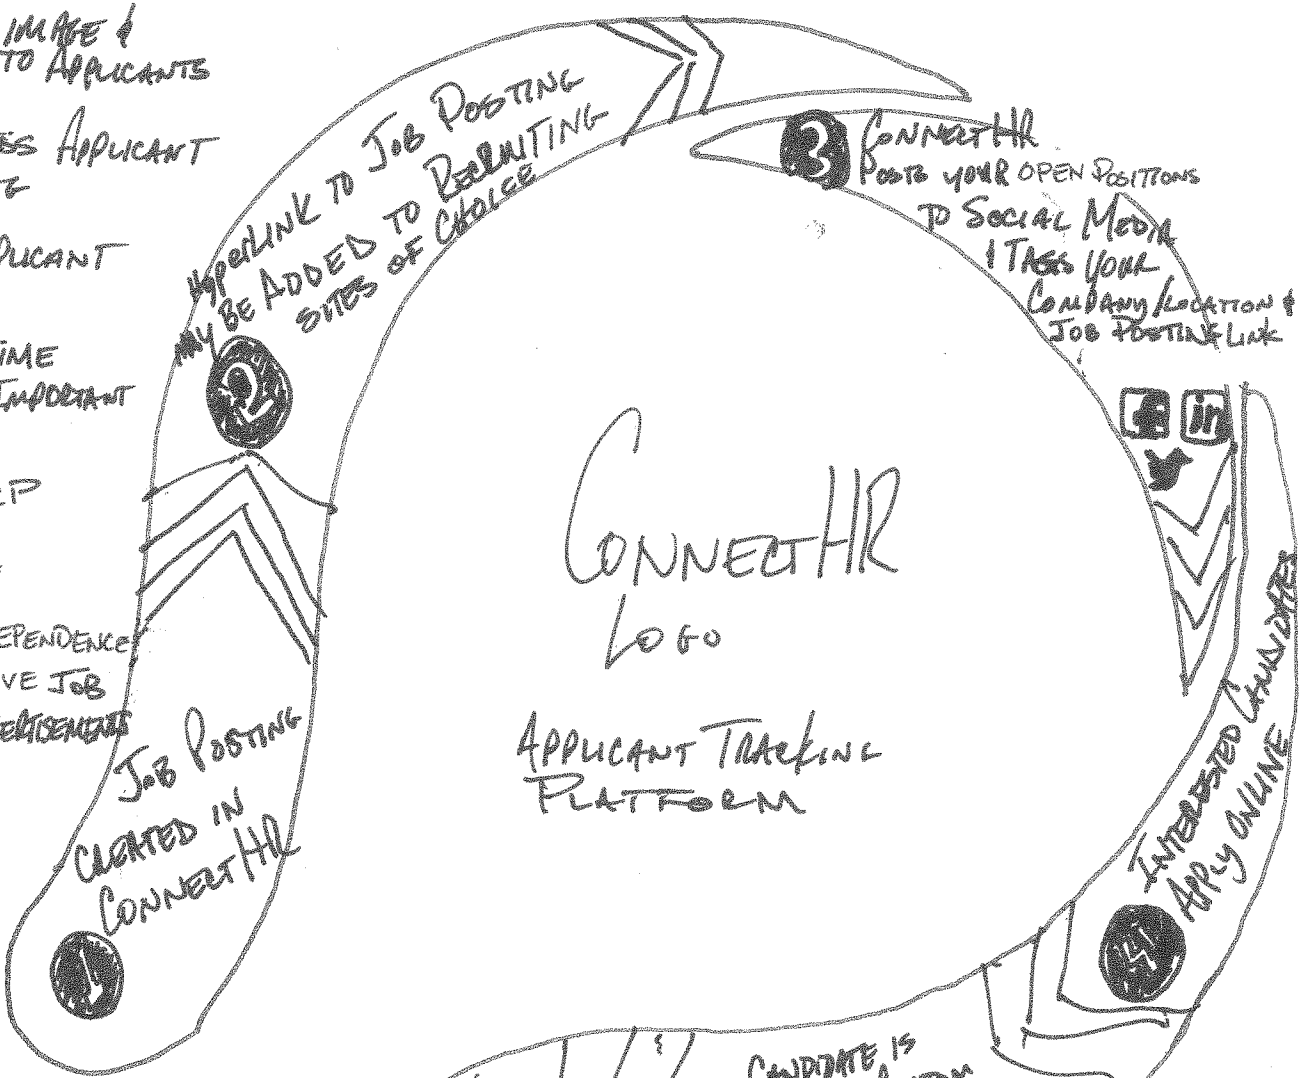 IMAGE &
TO APPLICANTS
APPLICANT
IME
IMPORTANT
EPENDENCE
VE JOB
ERTISEMENTS
HYPERLINK TO JOB POSTING
MAY BE ADDED TO RECRUITING
SITES OF CHOICE
2
JOB POSTING
CREATED IN
CONNECTHR
1
3
CONNECTHR
POSTS YOUR OPEN POSITIONS
TO SOCIAL MEDIA
& TAGS YOUR
COMPANY/LOCATION &
JOB POSTING LINK
f in
CONNECTHR
LOGO
APPLICANT TRACKING
PLATFORM
INTERESTED CANDIDATES
APPLY ONLINE
4
CANDIDATE IS